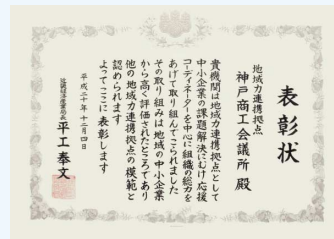 表彰状
地域力連携拠点
神戸商工会議所 殿
貴機関は地域力連携拠点として
中小企業の課題解決にむけ応援
コーディネーターを中心に組織の総力を
あげて取り組んでこられました
その取り組みは地域の中小企業
から高く評価されたところであり
他の地域力連携拠点の模範と
認められます
よってここに表彰します
平成二十年十二月四日
近畿経済産業局長
平工奉文